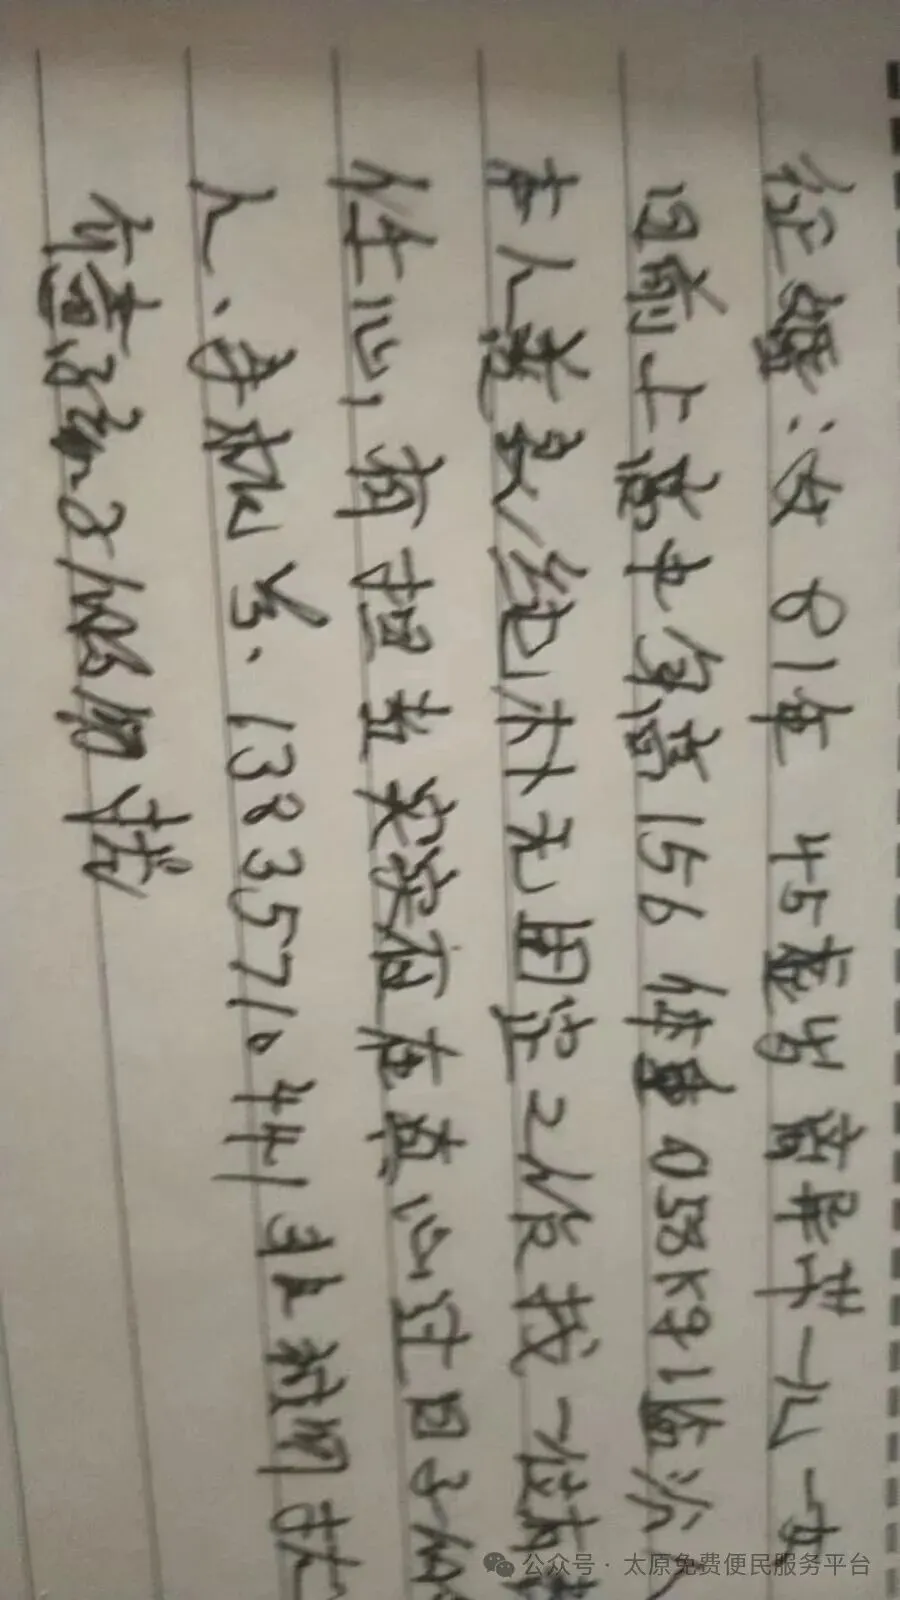 征婚：女 81年 45岁 离异带一儿一女
目前上高中身高156 体重058kg 临汾人
本人善良纯朴无固定工作找一位有责
任心，有担当实实在在真心过日子的
人、手机号.13835710441 非诚勿扰
有意强加了的勿扰
公众号 · 太原免费便民服务平台